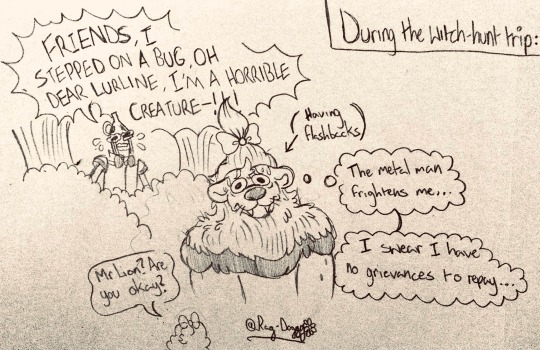 During the witch-hunt trip:
FRIENDS, I
STEPPED ON A BUG, OH
DEAR LURLINE, I'M A HORRIBLE
CREATURE-!!!
(Having
flashbacks)
The metal man
frightens me,...
I swear I have
no grievances to repay...
Mr Lion? Are
you okay?